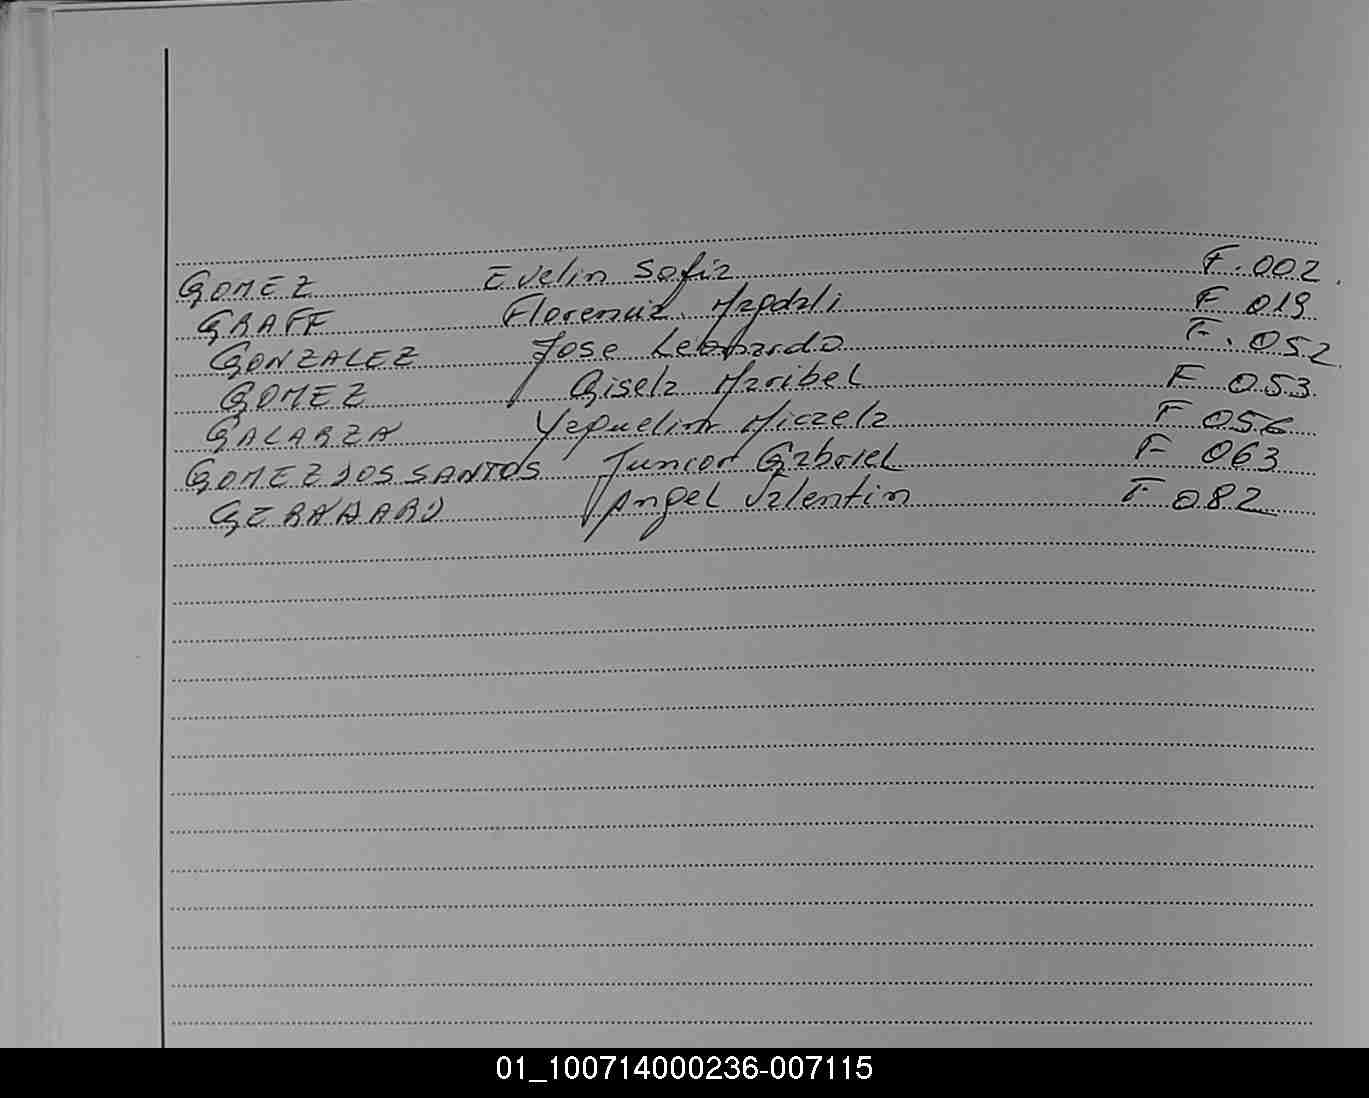 GOMEZ Evelin Sofia F. 002
GRAFF Florencia Magdali F 019
GONZALEZ Jose Leonardo F. 052
GOMEZ Gisela Maribel F 053
GALARZA Yaquelin Micaela F 056
GOMEZ DOS SANTOS Junior Gabriel F 063
Angel Valentin F 082
01_100714000236-007115